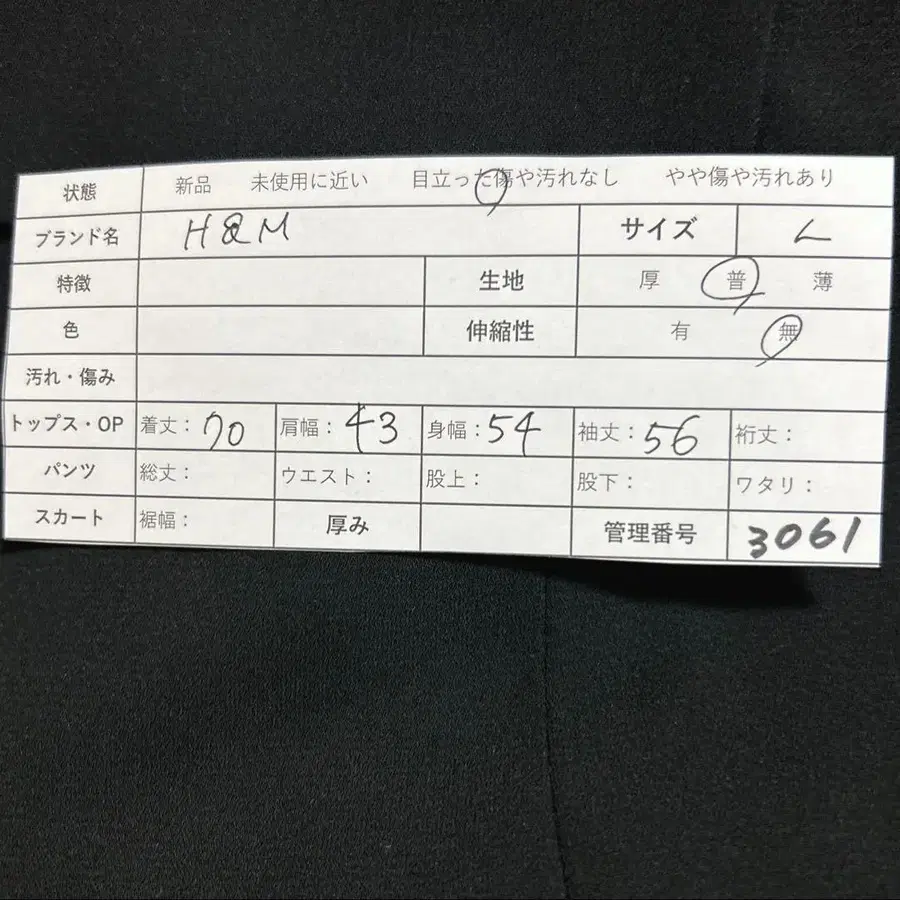 状態 新品 未使用に近い 目立った傷や汚れなし やや傷や汚れあり
ブランド名 H&M サイズ L
特徴 生地 厚 普 薄
色 伸縮性 有 無
汚れ・傷み
トップス・OP 着丈: 70 肩幅: 43 身幅: 54 袖丈: 56 裄丈:
パンツ 総丈: ウエスト: 股上: 股下: ワタリ:
スカート 裾幅: 厚み 管理番号 3061